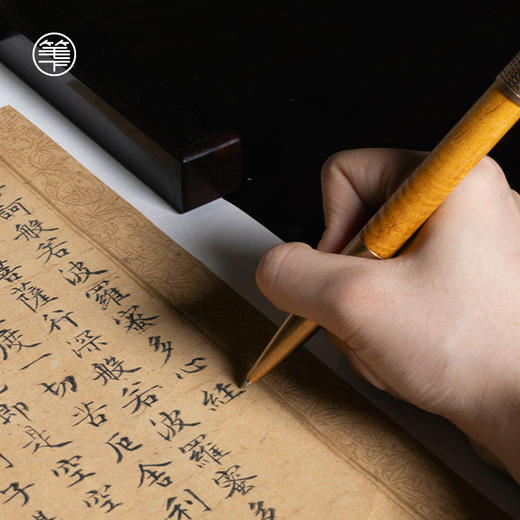 笔下
訶般若波羅蜜多心經
菩薩行深般若波羅蜜多
度一切苦厄舍利
即是空空
子